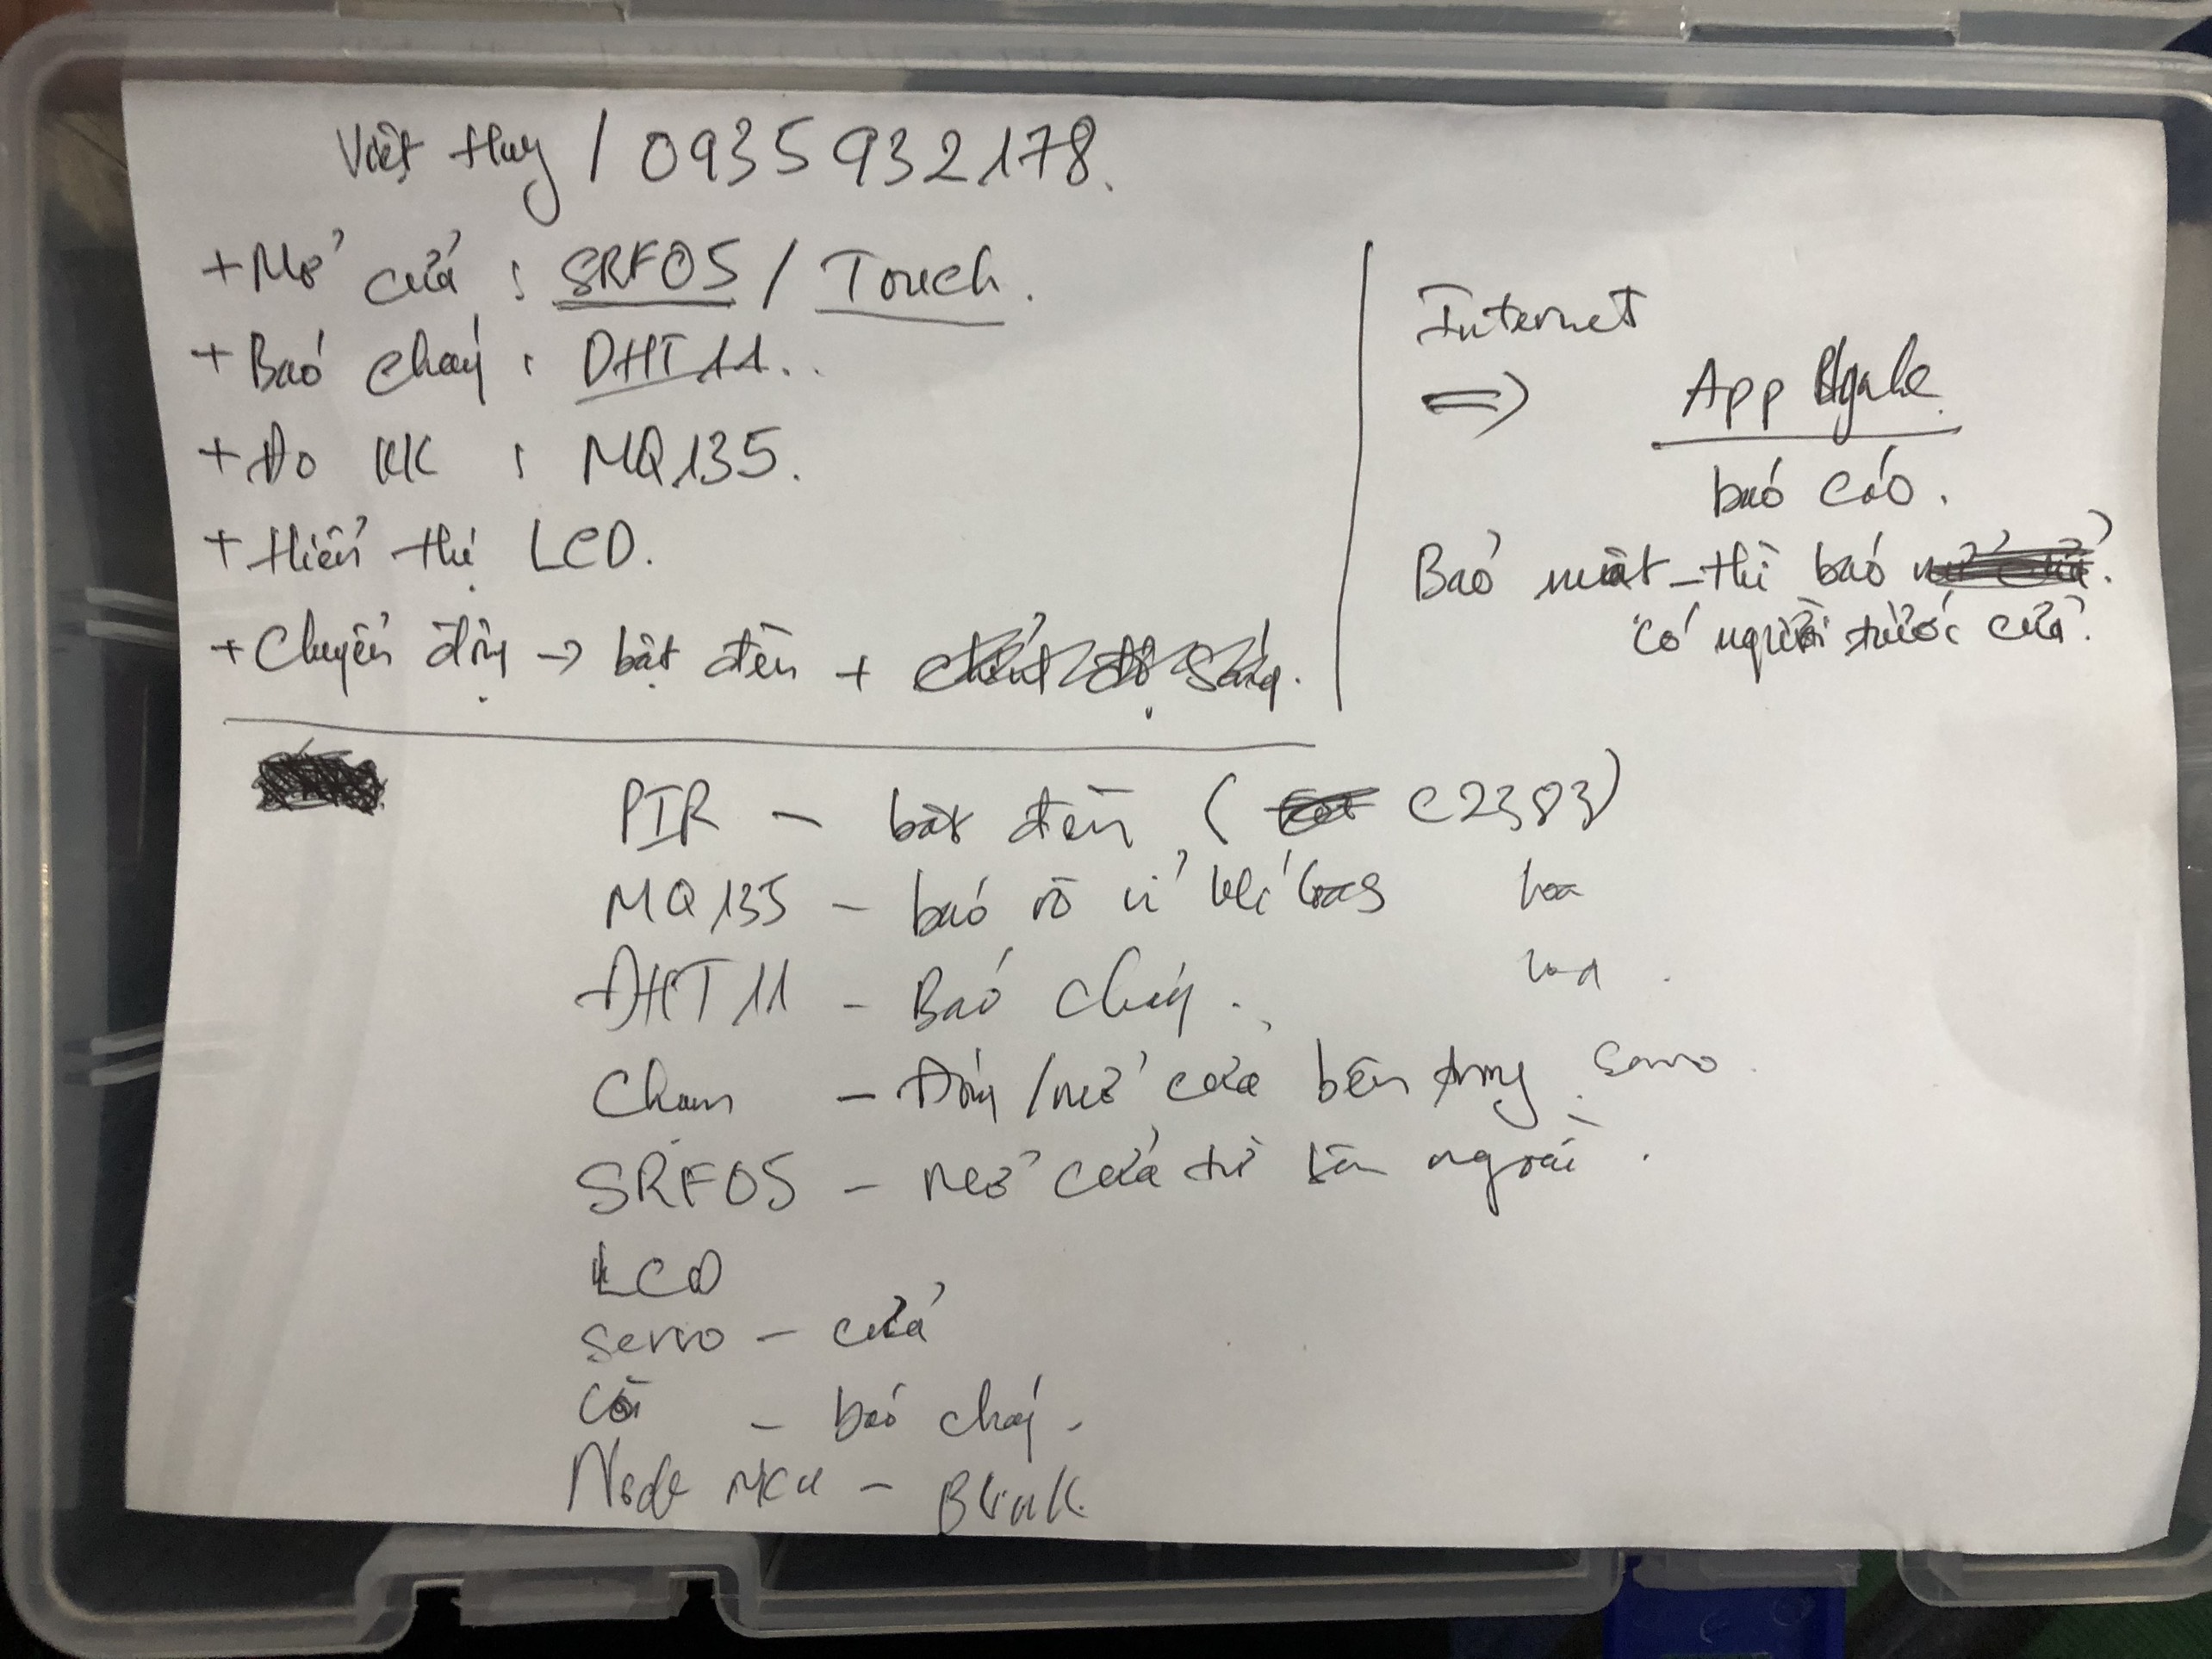 Việt Huy / 0935932178.
+ Mở cửa : SRF05 / Touch.
+ Báo cháy : DHT11..
+ Đo KK : MQ135.
+ Hiển thị LCD.
+ Chuyển động → bật đèn +
Internet
⇒ App
báo cáo.
Bảo mật - thì báo
có người trước cửa.
PIR - bật đèn ( C2383)
MQ135 - báo rò rỉ khí Gas
ĐHT11 - Báo cháy.
Chạm - Đóng / mở cửa bên trong servo.
SRF05 - mở cửa từ bên ngoài.
LCD
Servo - cửa
Còi - báo cháy.
Node MCU - Blink